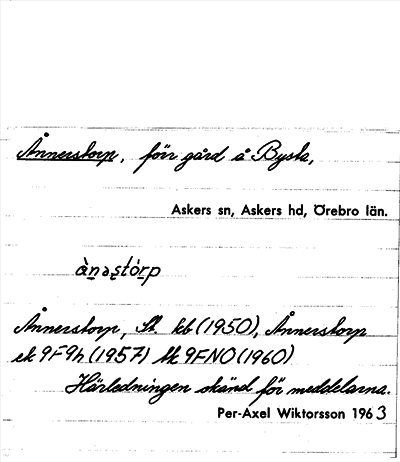 Ånnerstorp, förr gård å Bysta,
Askers sn, Askers hd, Örebro län.
Ånnerstorp, St. kb (1950), Ånnerstorp
ek 9F9h (1957) tk 9FNO (1960)
Härledningen okänd för meddelarna.
Per-Axel Wiktorsson 1963